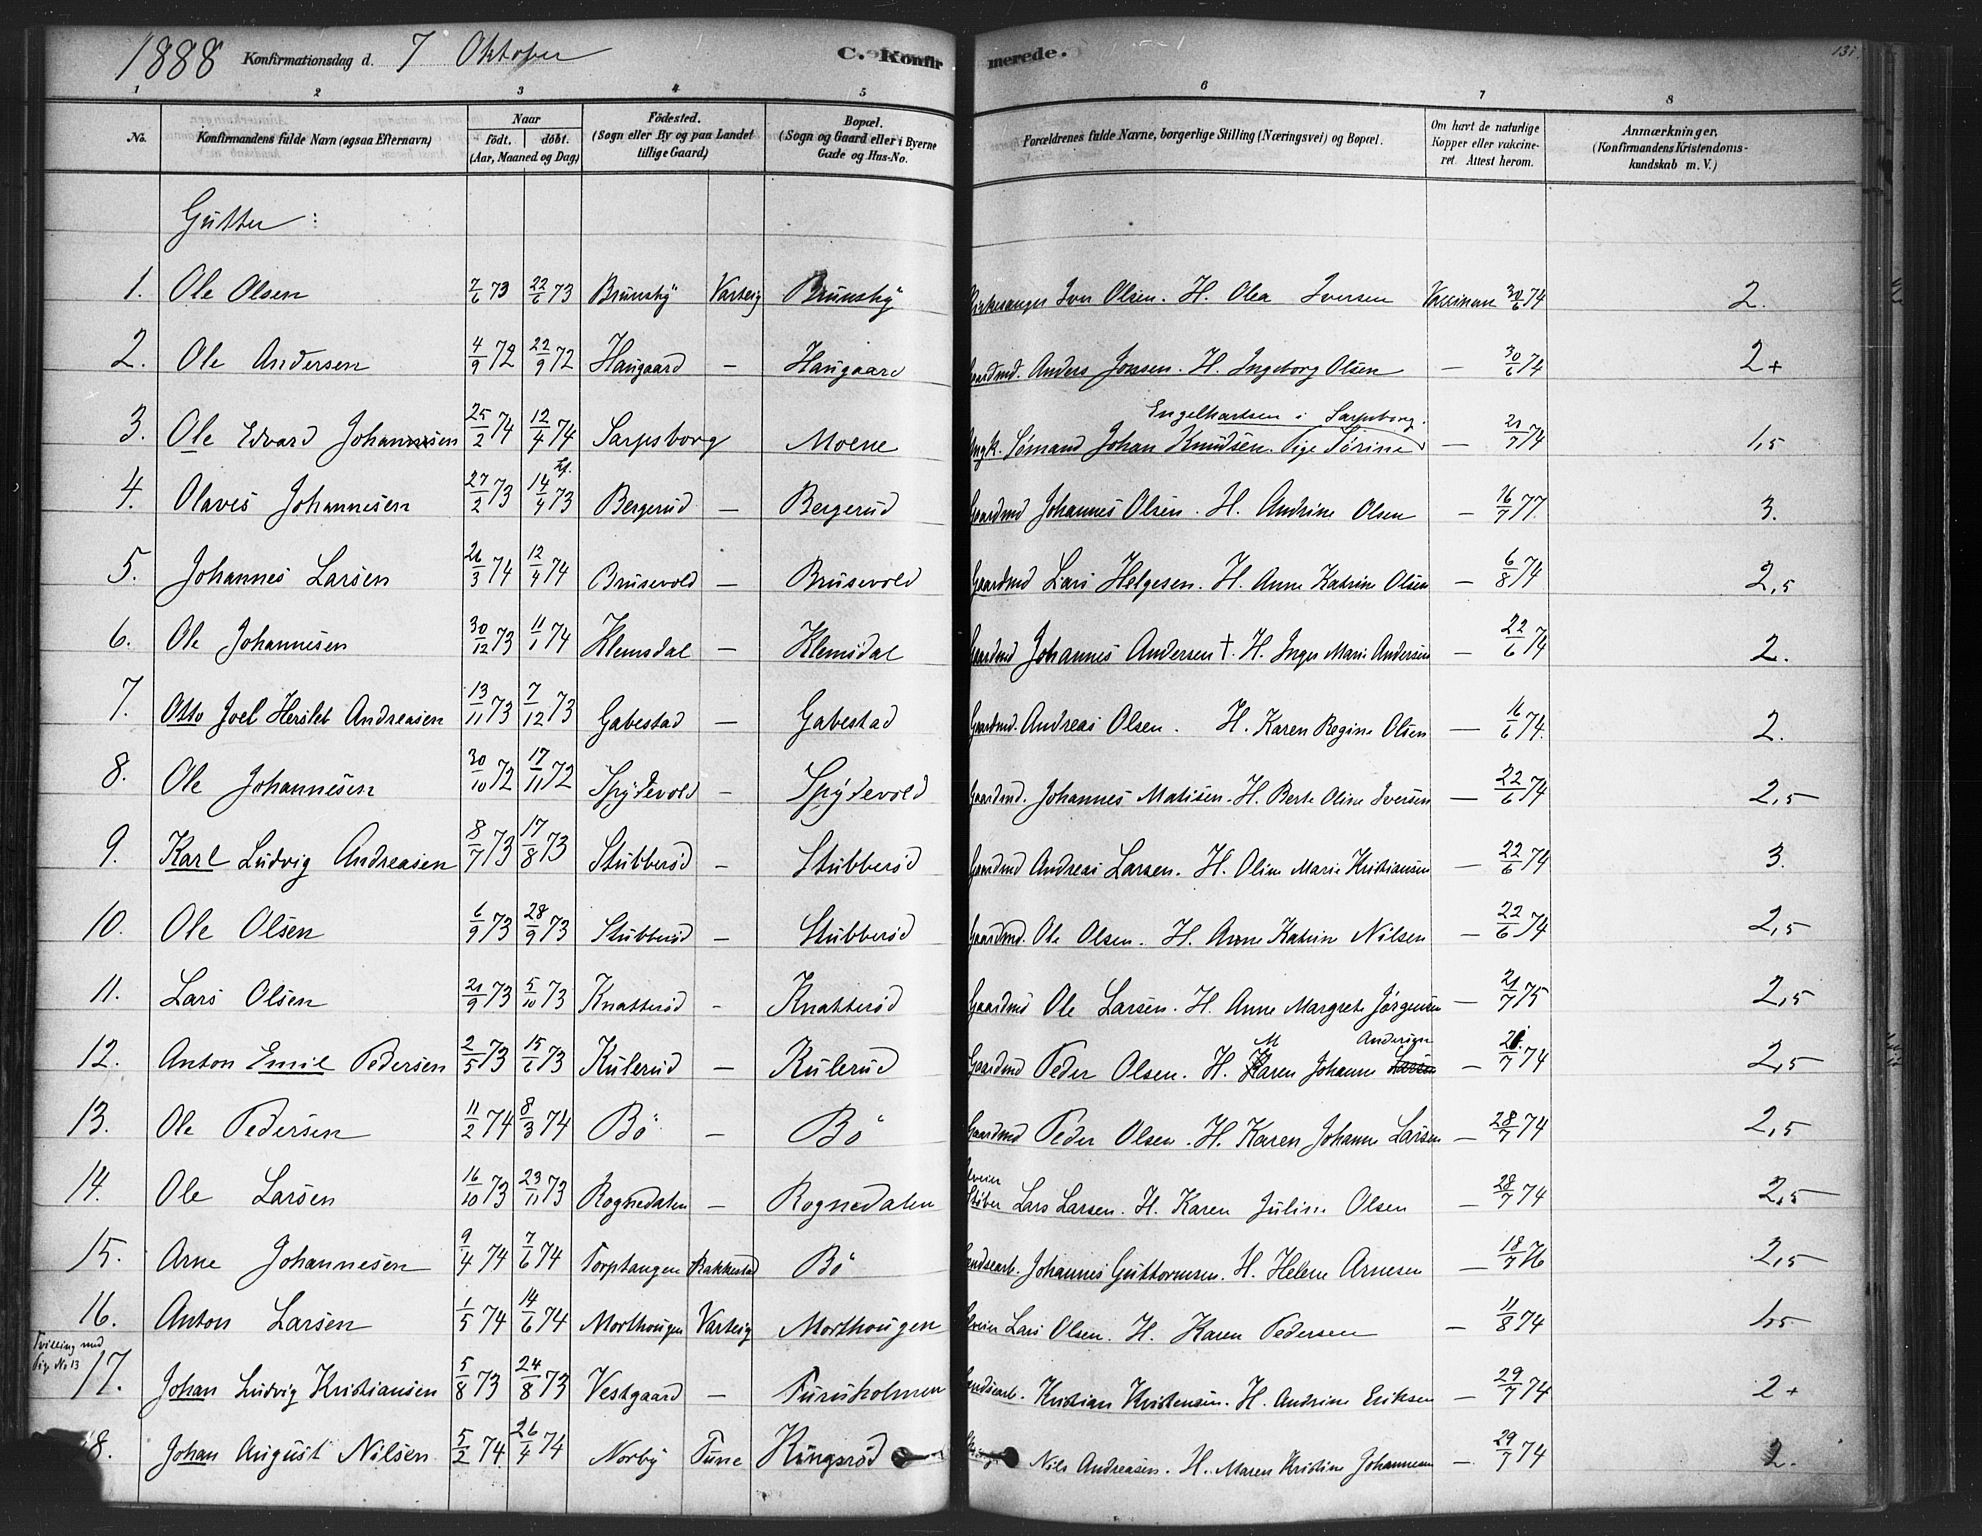 1888 Konfirmationsdag d. 7 Oktober C. Konfirmerede. 131.
1 2 3 4 5 6 7 8
No. Konfirmandens fulde Navn (ogsaa Efternavn) Naar født. døbt. (Aar, Maaned og Dag) Fødested. (Sogn eller By og paa Landet tillige Gaard) Bopæl. (Sogn og Gaard eller i Byerne Gade og Hus-No. Forældrenes fulde Navne, borgerlige Stilling (Næringsvei) og Bopæl. Om havt de naturlige Kopper eller vakcineret. Attest herom. Anmærkninger. (Konfirmandens Kristendomskundskab m. V.)
Gutter:
1. Ole Olsen 7/6 73 22/6 73 Brunsby Varteig Brunsby Kirkesanger Iver Olsen. H. Olea Iversen 30/6 74 2.
2. Ole Andersen 4/9 72 22/9 72 Haugaard — Haugaard Gaardmd. Anders Jonsen. H. Ingeborg Olsen — 30/6 74 2+
Engelhartsen i Sarpsborg.
3. Ole Edvard Johannesen 25/2 74 12/4 74 Sarpsborg Moene Ungk. Sømand Johan Knudsen. Pige Sørine — 21/7 74 1,5
4. Olaves Johannesen 27/2 73 14/4 73 Bergerud — Bergerud Gaardmd Johannes Olsen. H. Andrine Olsen — 16/7 77. 3.
5. Johannes Larsen 26/3 74 12/4 74 Brusevold — Brusevold Gaardmd Lars Helgesen. H. Anne Katrine Olsen — 6/8 74 2,5
6. Ole Johannesen 30/12 73 11/1 74 Klemsdal — Klemsdal Gaardmd Johannes Andersen †. H. Inger Marie Andersen — 22/6 74 2.
7. Otto Joel Herslet Andreasen 13/11 73 7/12 73 Gabestad — Gabestad Gaardmd. Andreas Olsen. H. Karen Regine Olsen — 16/6 74. 2.
8. Ole Johannesen 30/10 72 17/11 72 Spydevold — Spydevold Gaardmd. Johannes Matisen. H. Berte Oline Iversen — 22/6 74 2,5
9. Karl Ludvig Andreasen 8/7 73 17/8 73 Stubberød — Stubberød Gaardmd Andreas Larsen. H. Oline Marie Kristiansen — 22/6 74 3.
10. Ole Olsen 6/9 73 28/9 73 Stubberød — Stubberød Gaardmd. Ole Olsen. H. Anne Katrine Nilsen — 22/6 74 2,5
11. Lars Olsen 21/9 73 5/10 73 Knatterød — Knatterød Gaardmd Ole Larsen. H. Anne Margrete Jørgensen — 21/7 75 2,5
M Andersen
12. Anton Emil Pedersen 2/5 73 15/6 73 Kulerud — Kulerud Gaardmd Peder Olsen. H. Karen Johanne Larsen — 21/7 74 2,5
13. Ole Pedersen 11/2 74 8/3 74 Bø — Bø Gaardmd Peder Olsen. H. Karen Johanne Larsen — 28/7 74 2,5
14. Ole Larsen 16/10 73 23/11 73 Rognedalen — Rognedalen Lars Larsen. H. Karen Juline Olsen — 28/7 74 2,5
15. Arne Johannesen 9/4 74 7/6 74 Torptangen Rakkestad Bø Johannes Guttormsen. H. Helene Arnesen — 18/7 76 2,5
16. Anton Larsen 1/5 74 14/6 74 Morthougen Varteig Morthougen Lars Olsen. H. Karen Pedersen — 11/8 74 1,5
Tvilling med
Pig. No 13
17. Johan Ludvig Kristiansen 5/8 73 24/8 73 Vestgaard — Furuholmen Kristian Kristensen. H. Andrine Eriksen — 29/7 74 2+
8. Johan August Nilsen 5/2 74. 26/4 74 Norby Tune Kingsrød Nils Andreasen. H. Maren Kristine Johannesen — 29/7 74 2.